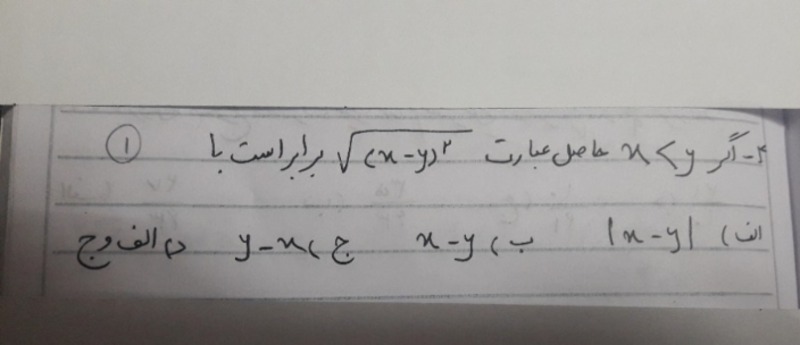 ۴- اگر x<y حاصل عبارت √(x-y)۲ برابر است با ①
الف) |x-y| ب) x-y ج) y-x د) الف و ج